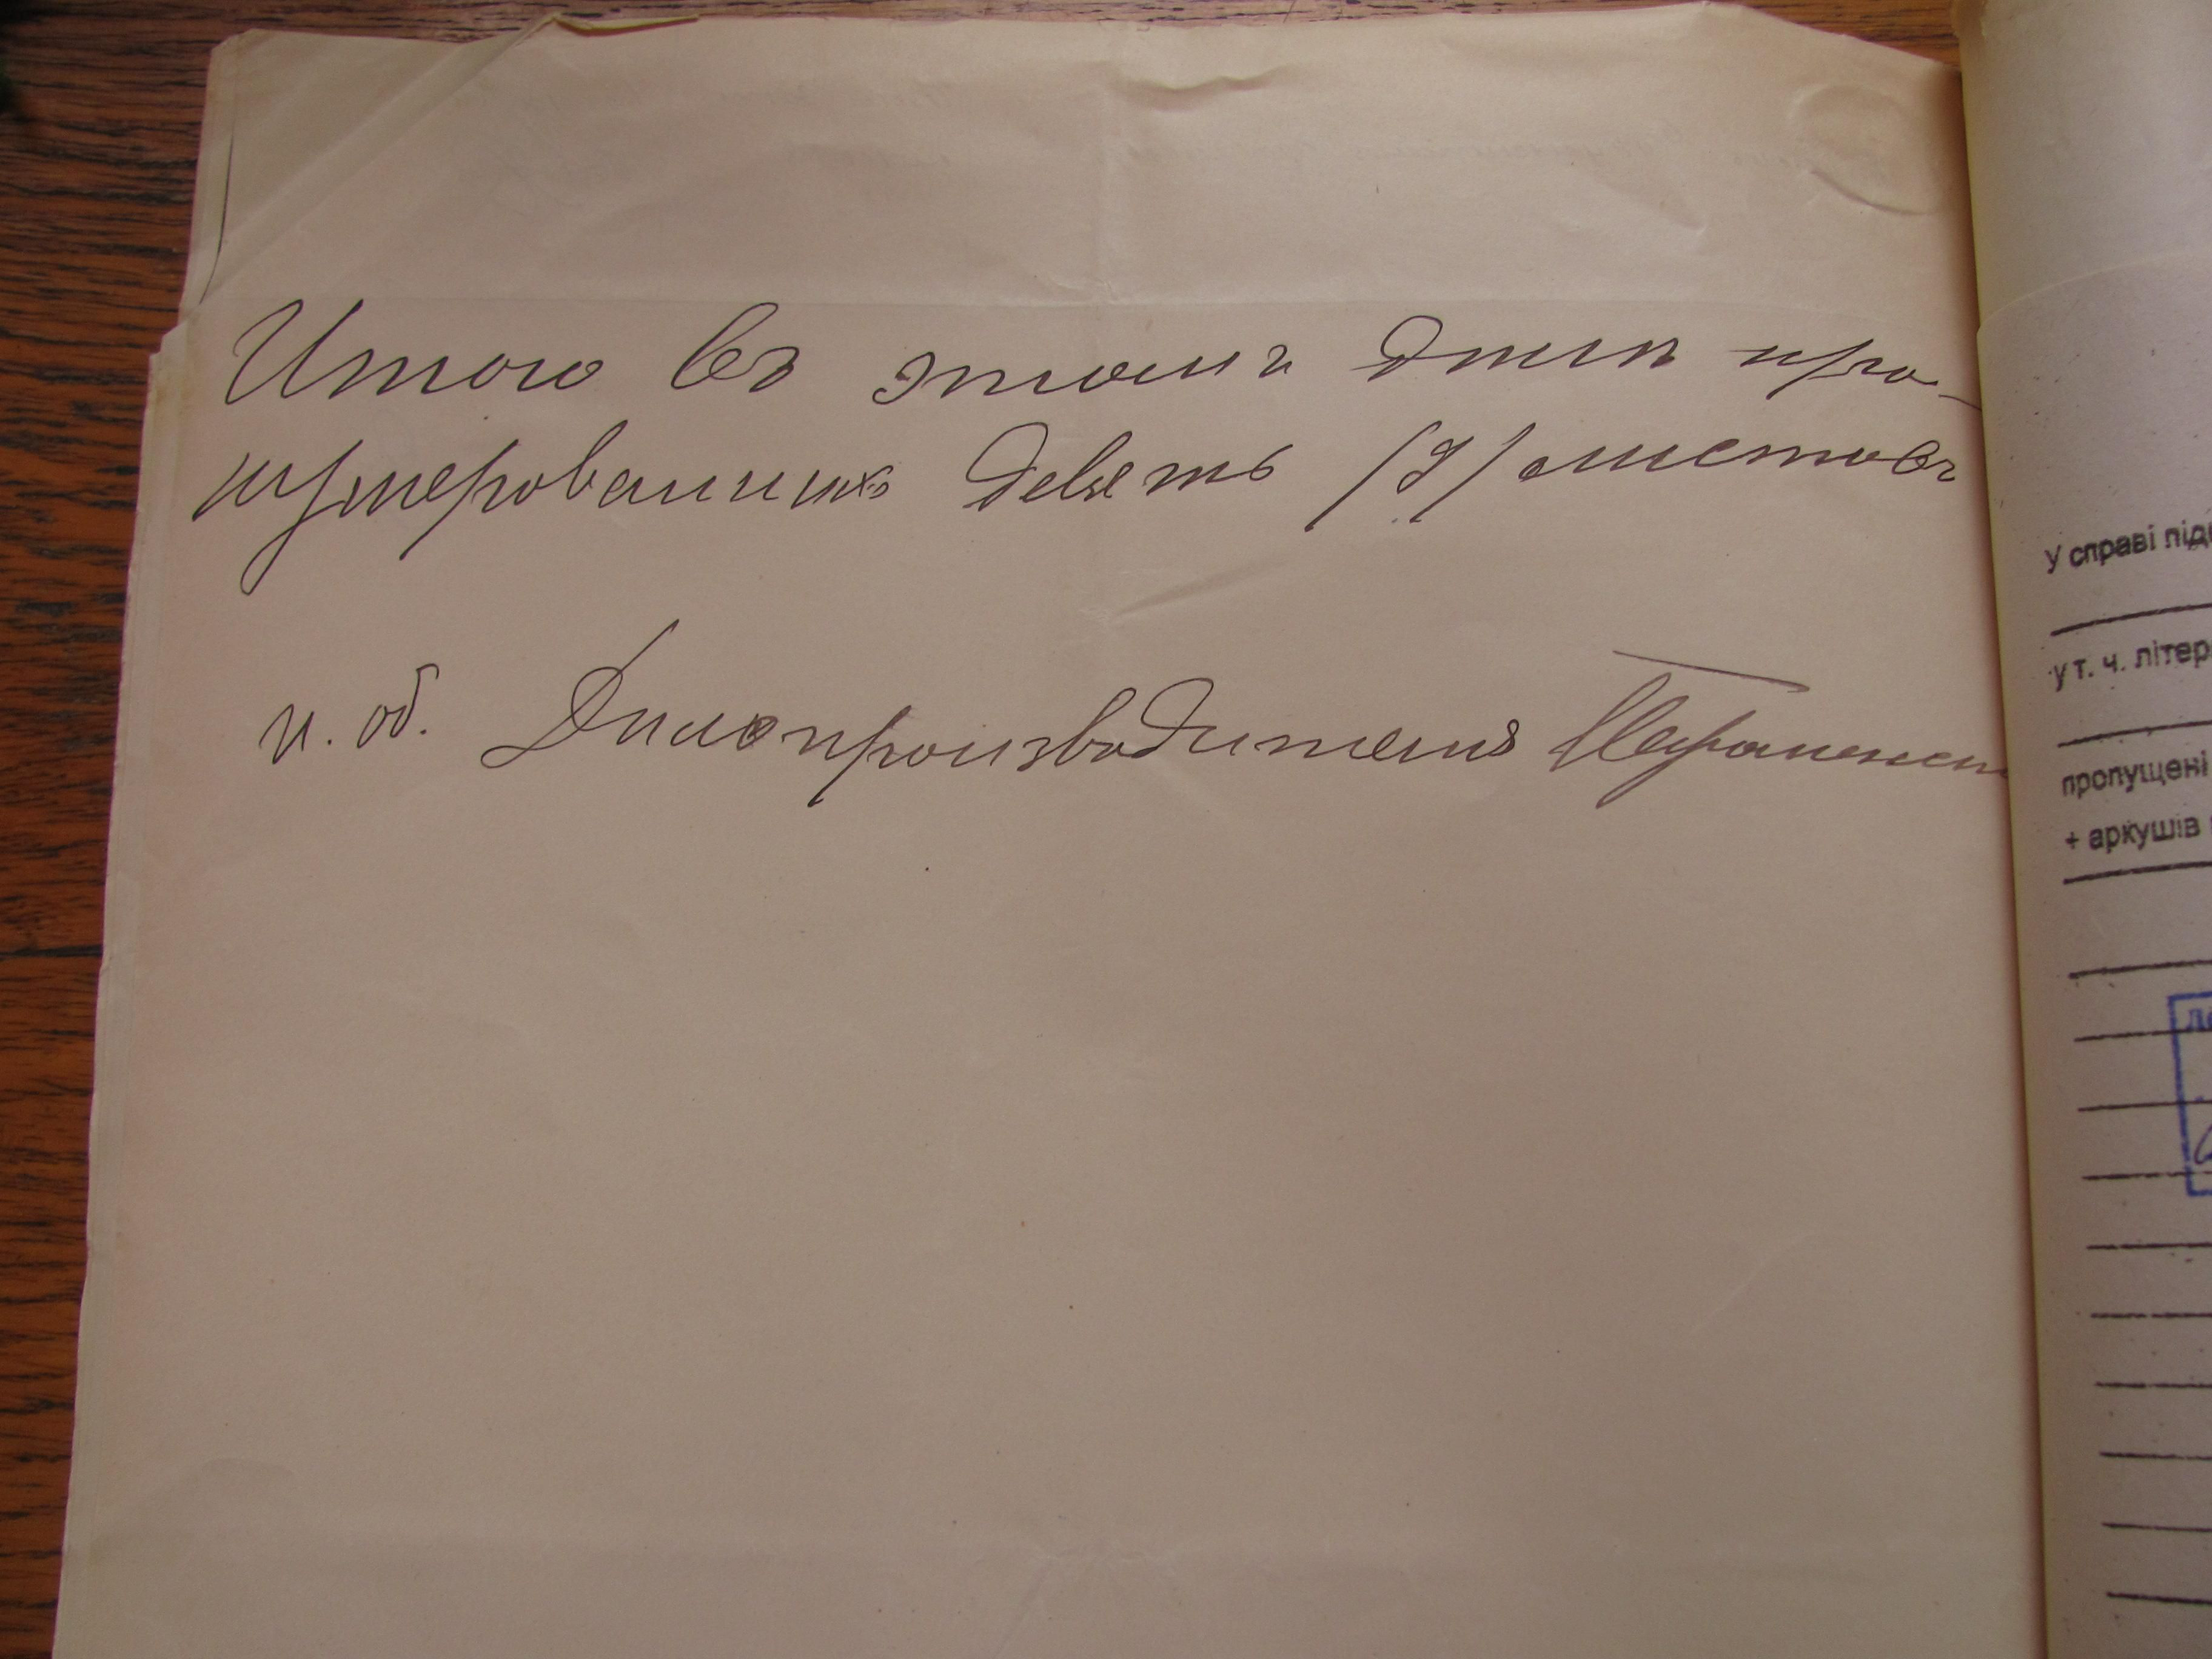 Итого въ этомъ дѣлѣ про-
нумерованныхъ девять /9/ листовъ
и. об. Дѣлопроизводителя
У справі підш
у т. ч. літер
пропущені
+ аркушів